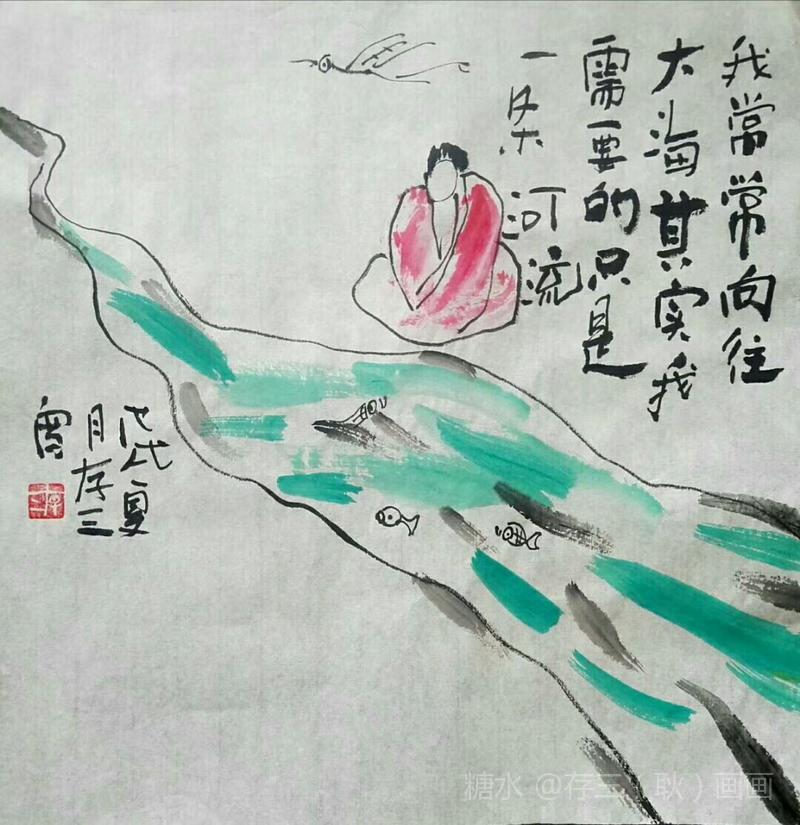 我常常向往
大海其实我
需要的只是
一条河流
戊戌夏
月存三
糖水 @存三（耿）画画